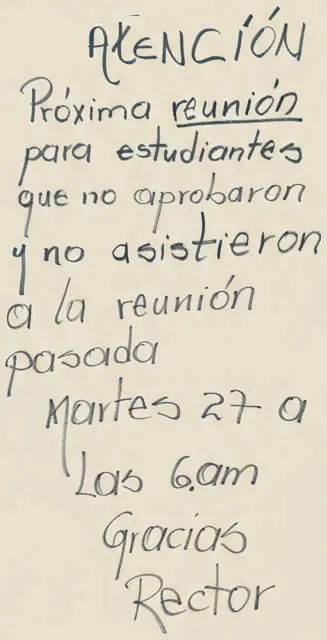 ATENCIÓN
Próxima reunión
para estudiantes
que no aprobaron
y no asistieron
a la reunión
pasada
Martes 27 a
Las 6.am
Gracias
Rector